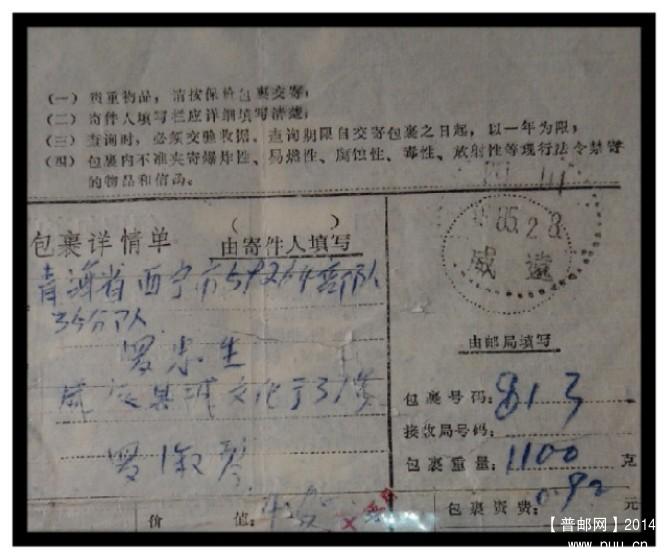 （一）贵重物品，请按保价包裹交寄；
（二）寄件人填写栏应详细填写清楚；
（三）查询时，必须交验收据。查询期限自交寄包裹之日起，以一年为限；
（四）包裹内不准夹寄爆炸性、易燃性、腐蚀性、毒性、放射性等现行法令禁寄
的物品和信函。
四川
85.2.3
威远
包裹详情单
（ ）
由寄件人填写
青海省西宁市59264部队
35分队
罗忠生
威远县城文化方31号
罗淑琴
由邮局填写
包裹号码：813
接收局号码：
包裹重量：1100克
包裹资费：0.92元
价值：
【普邮网】2014
www.puu.cn